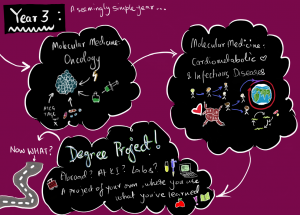 Year 3:
A seemingly simple year...
Molecular Medicine:
Oncology
Molecular Medicine:
Cardiometabolic
& Infectious Diseases
Now WHAT?
Degree Project!
Abroad? At KI? Labs?
A project of your own, where you use
what you've learned